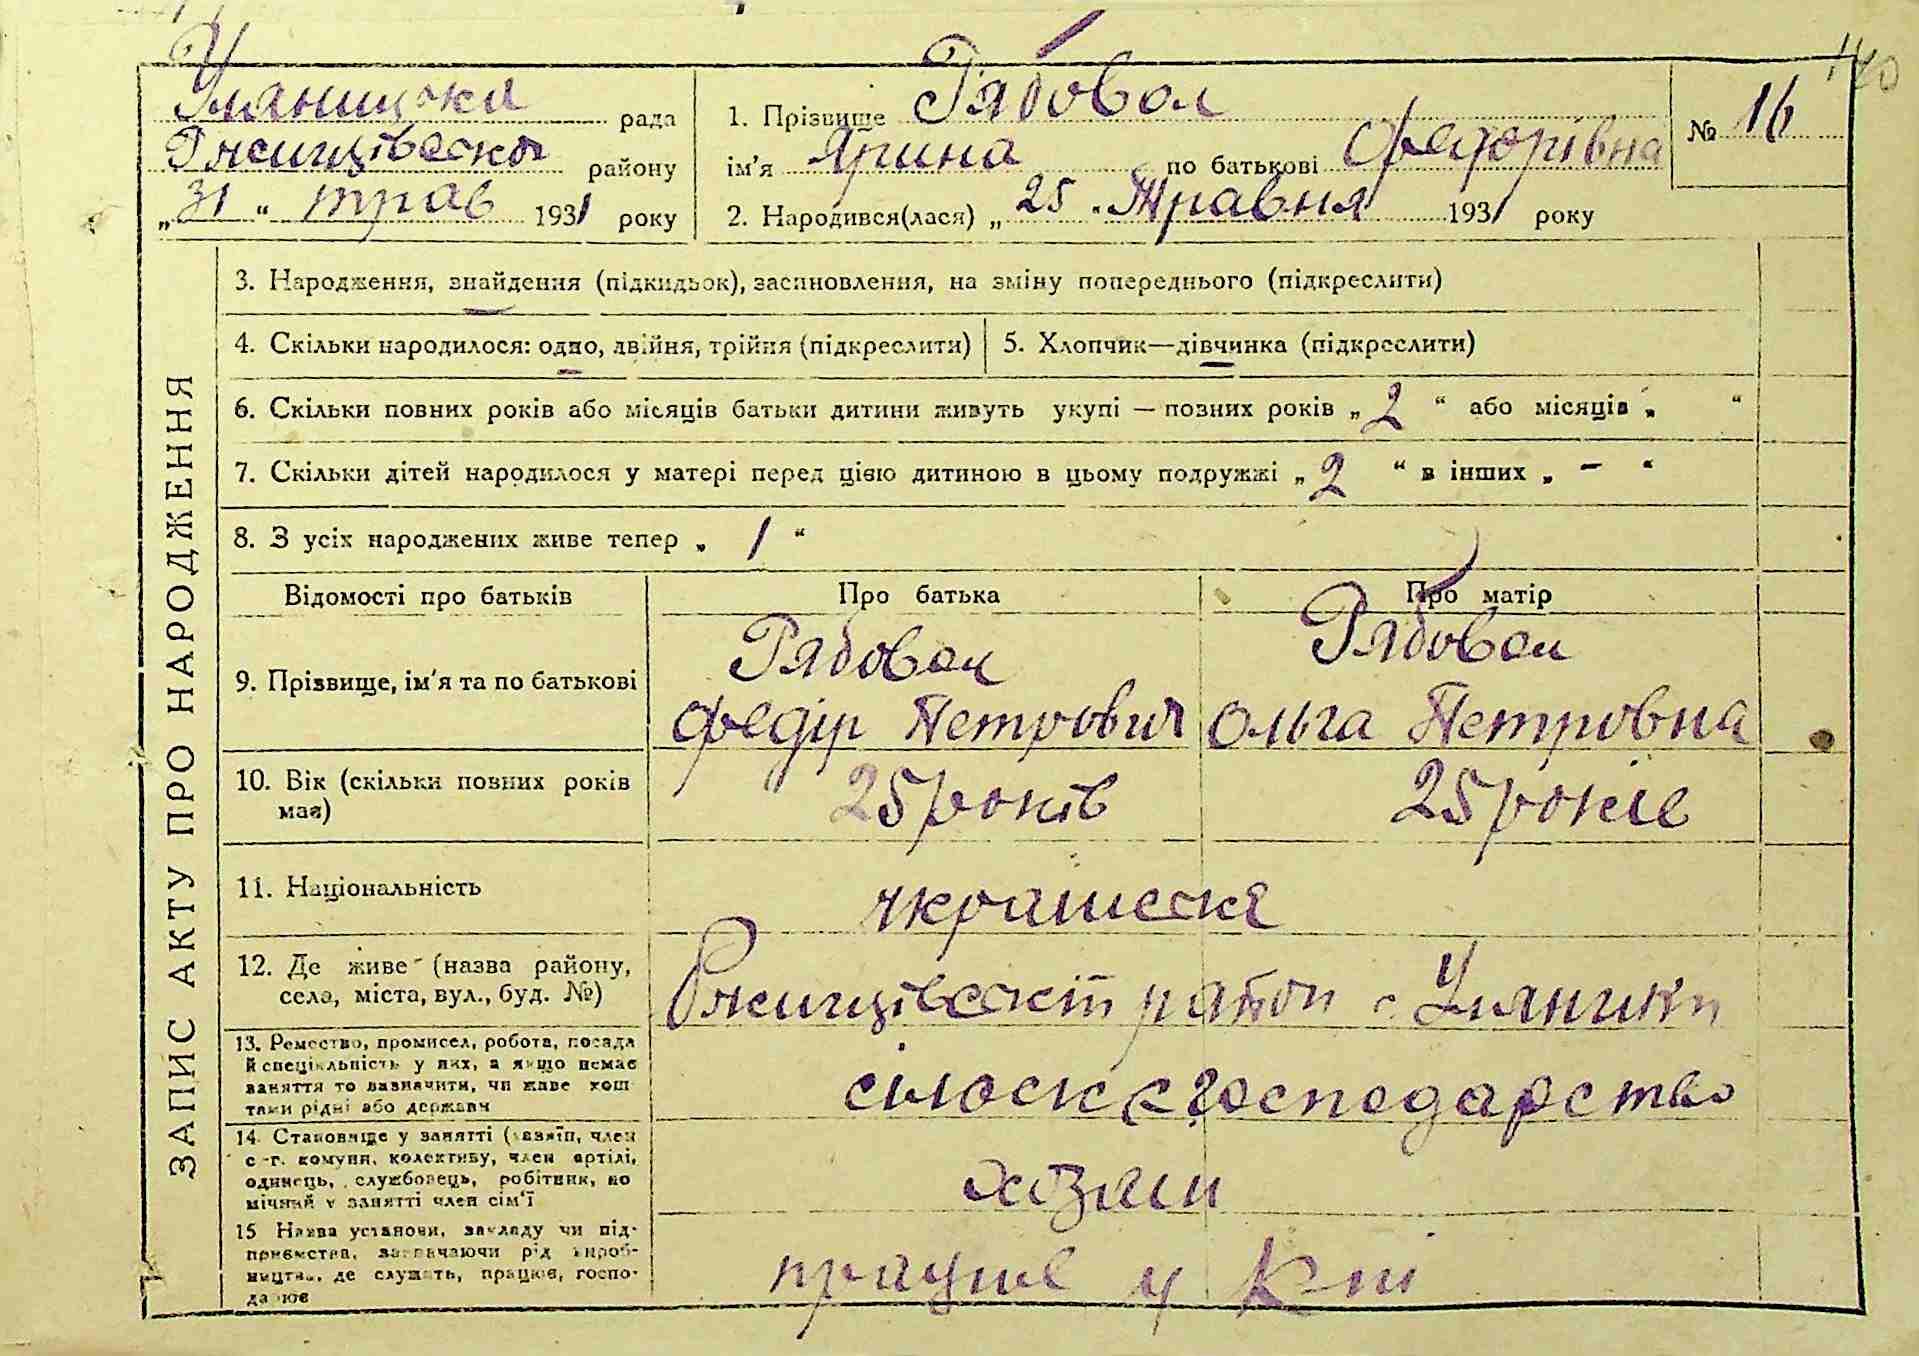 140
Уляницька рада
Ржищівськ району
„31“ трав 1931 року
1. Прізвище Рябовол
ім'я Ярина по батькові Федорівна
2. Народився(лася) „25“ Травня 1931 року
№ 16
ЗАПИС АКТУ ПРО НАРОДЖЕННЯ
3. Народження, знайдення (підкидьок), засиновлення, на зміну попереднього (підкреслити)
4. Скільки народилося: одно, двійня, трійня (підкреслити)
5. Хлопчик—дівчинка (підкреслити)
6. Скільки повних років або місяців батьки дитини живуть укупі — повних років „2“ або місяців „ “
7. Скільки дітей народилося у матері перед цією дитиною в цьому подружжі „2“ в інших „ – “
8. З усіх народжених живе тепер „1“
Відомості про батьків
Про батька
Про матір
9. Прізвище, ім'я та по батькові
Рябовол
Федір Петрович
Рябовол
Ольга Петровна
10. Вік (скільки повних років
має)
25 років
25 років
11. Національність
12. Де живе (назва району,
села, міста, вул., буд. №)
район с. Уляники
13. Ремество, промисел, робота, посада
й спеціяльність у них, а якщо немає
заняття то зазначити, чи живе кош
тами рідні або держави
господарство
14. Становище у занятті (хазяїн, член
с.-г. комуни, колективу, член артілі,
одинець, службовець, робітник, по
мічний у занятті член сім'ї
хозяин
15 Назва установи, закладу чи під-
приємства, зазначаючи рід вироб-
ництва, де служить, працює, госпо-
дарює
працює у